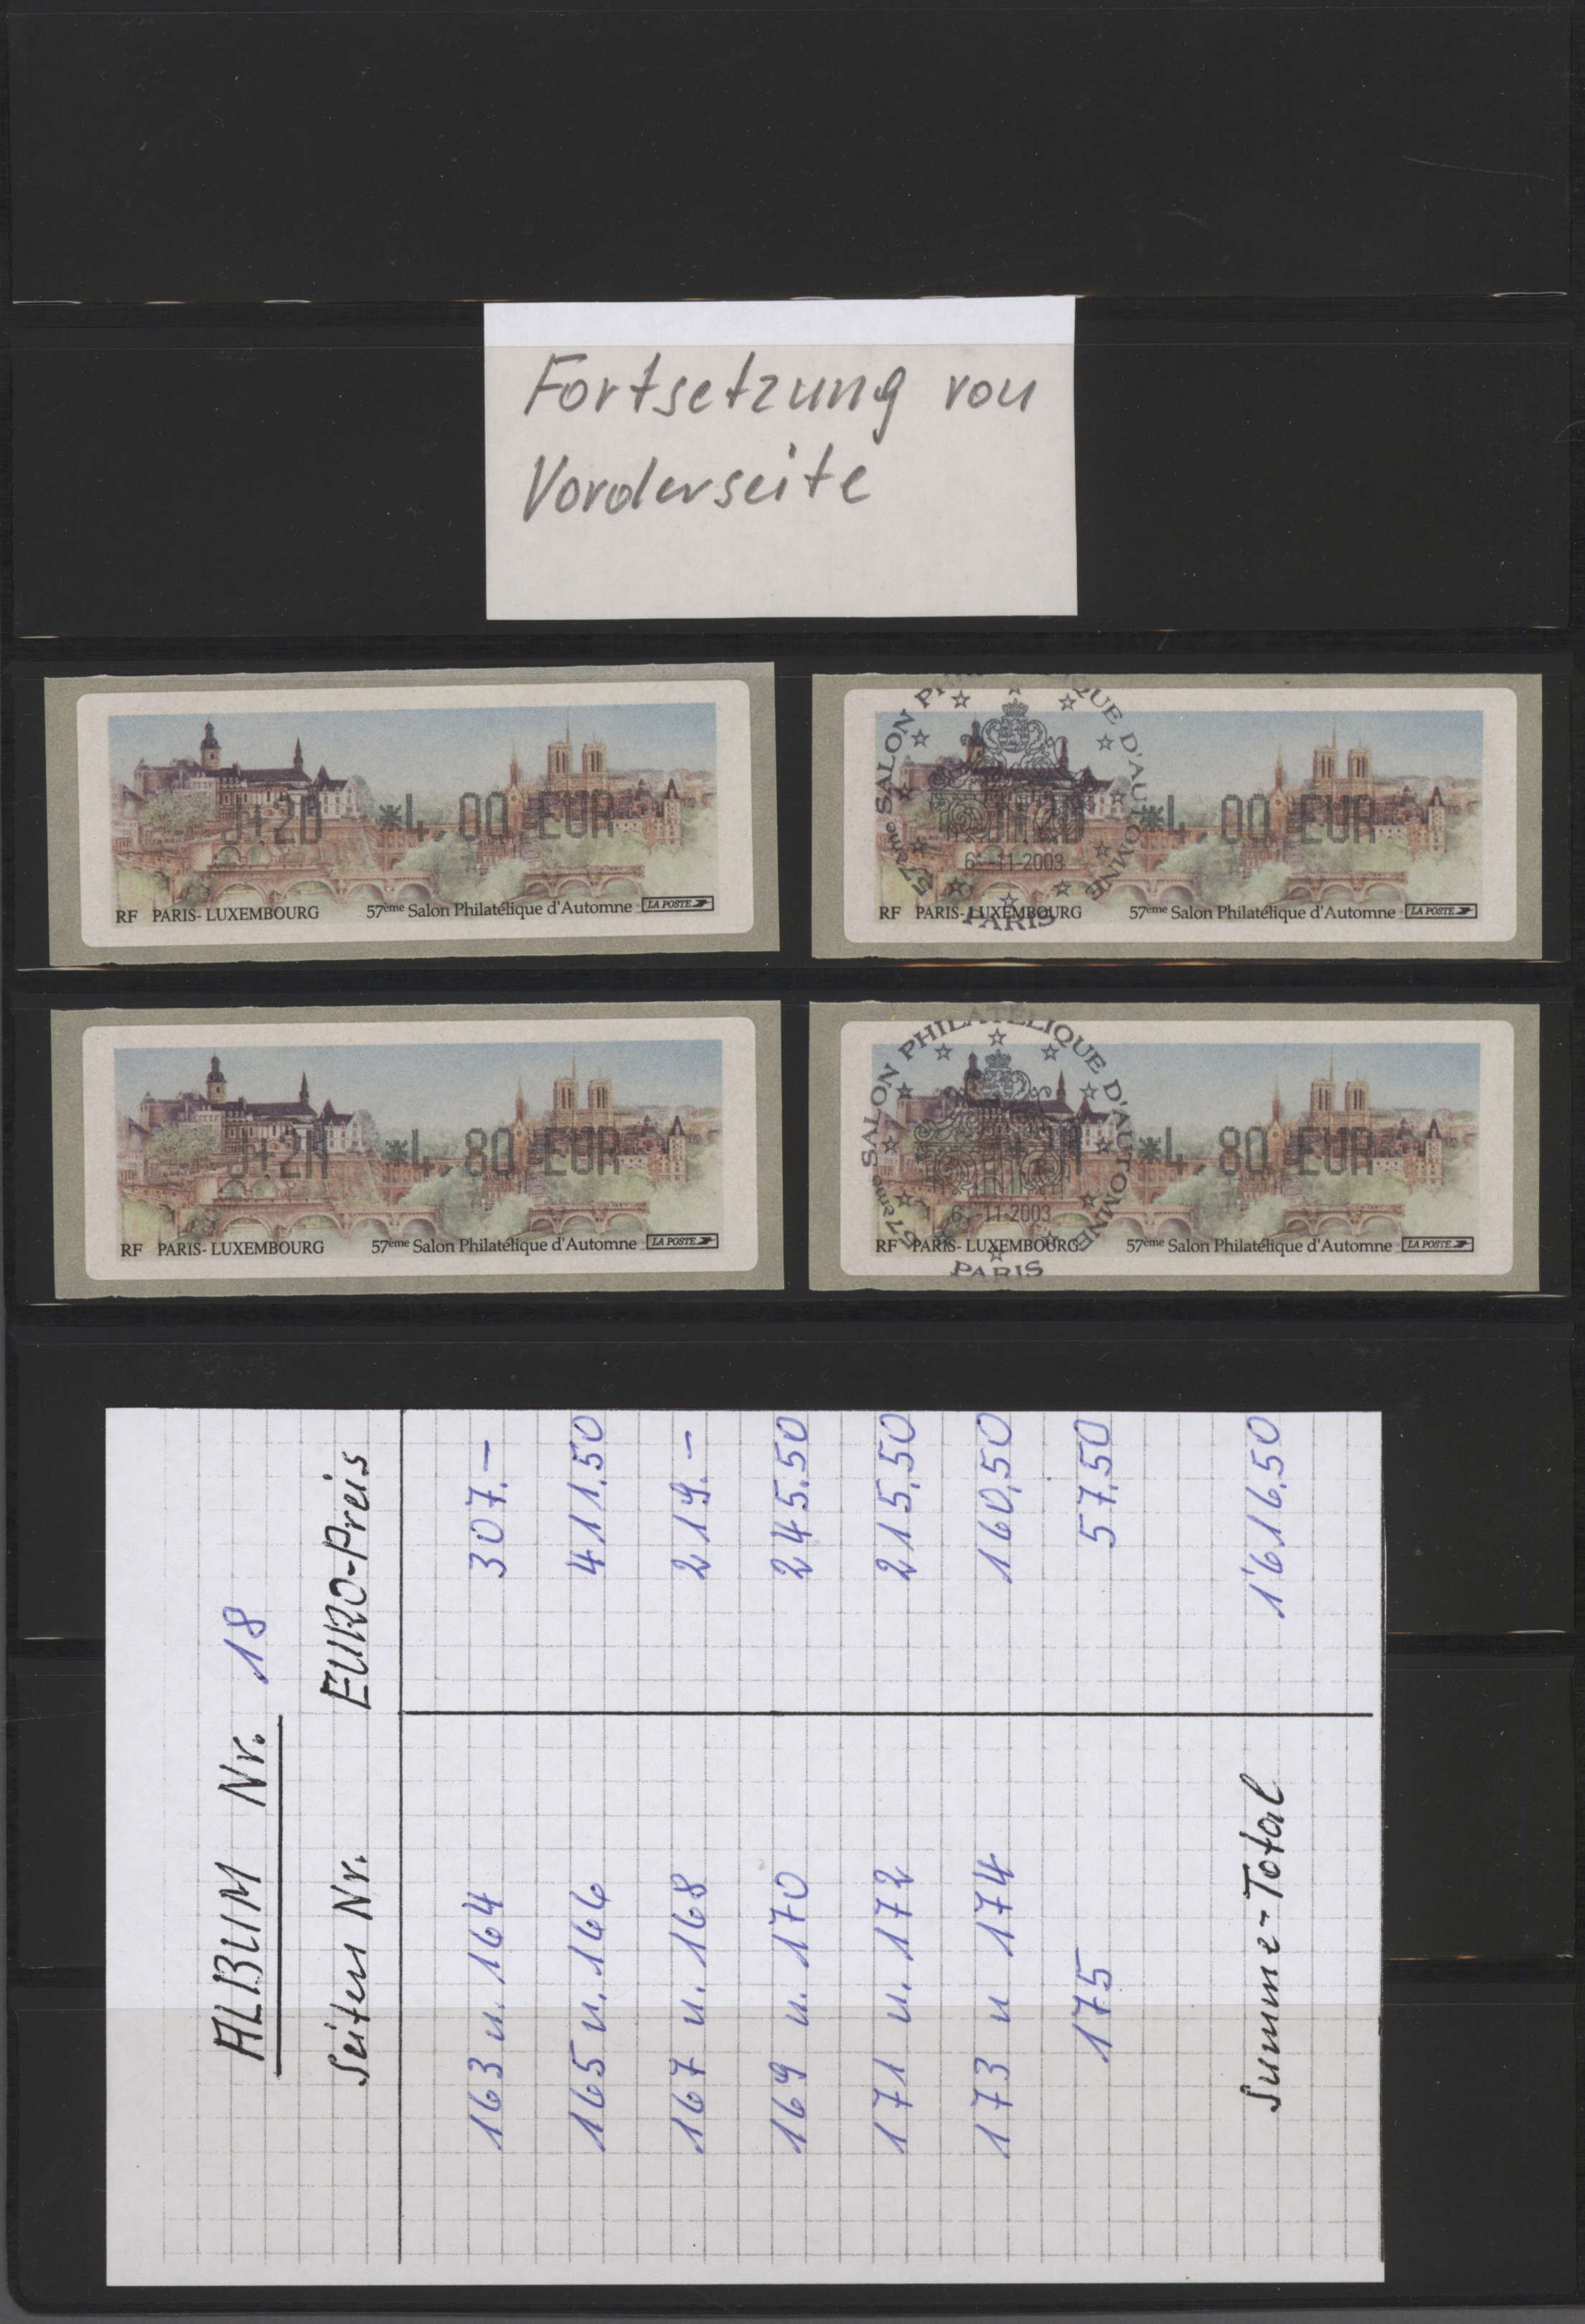 Fortsetzung von
Vorderseite
*4,00 EUR
RF PARIS-LUXEMBOURG 57ème Salon Philatélique d'Automne LA POSTE
57ème SALON PHILATELIQUE D'AUTOMNE
*4,00 EUR
6-11-2003
RF PARIS-LUXEMBOURG 57ème Salon Philatélique d'Automne LA POSTE
PARIS
*4,80 EUR
RF PARIS-LUXEMBOURG 57ème Salon Philatélique d'Automne LA POSTE
57ème SALON PHILATELIQUE D'AUTOMNE
*4,80 EUR
6-11-2003
RF PARIS-LUXEMBOURG 57ème Salon Philatélique d'Automne LA POSTE
PARIS
ALBUM Nr. 18
Seiten Nr. EURO-Preis
163 u. 164 307.-
165 u. 166 411.50
167 u. 168 219.-
169 u. 170 245.50
171 u. 172 215.50
173 u 174 160.50
175 57.50
Summe-Total 1'616.50